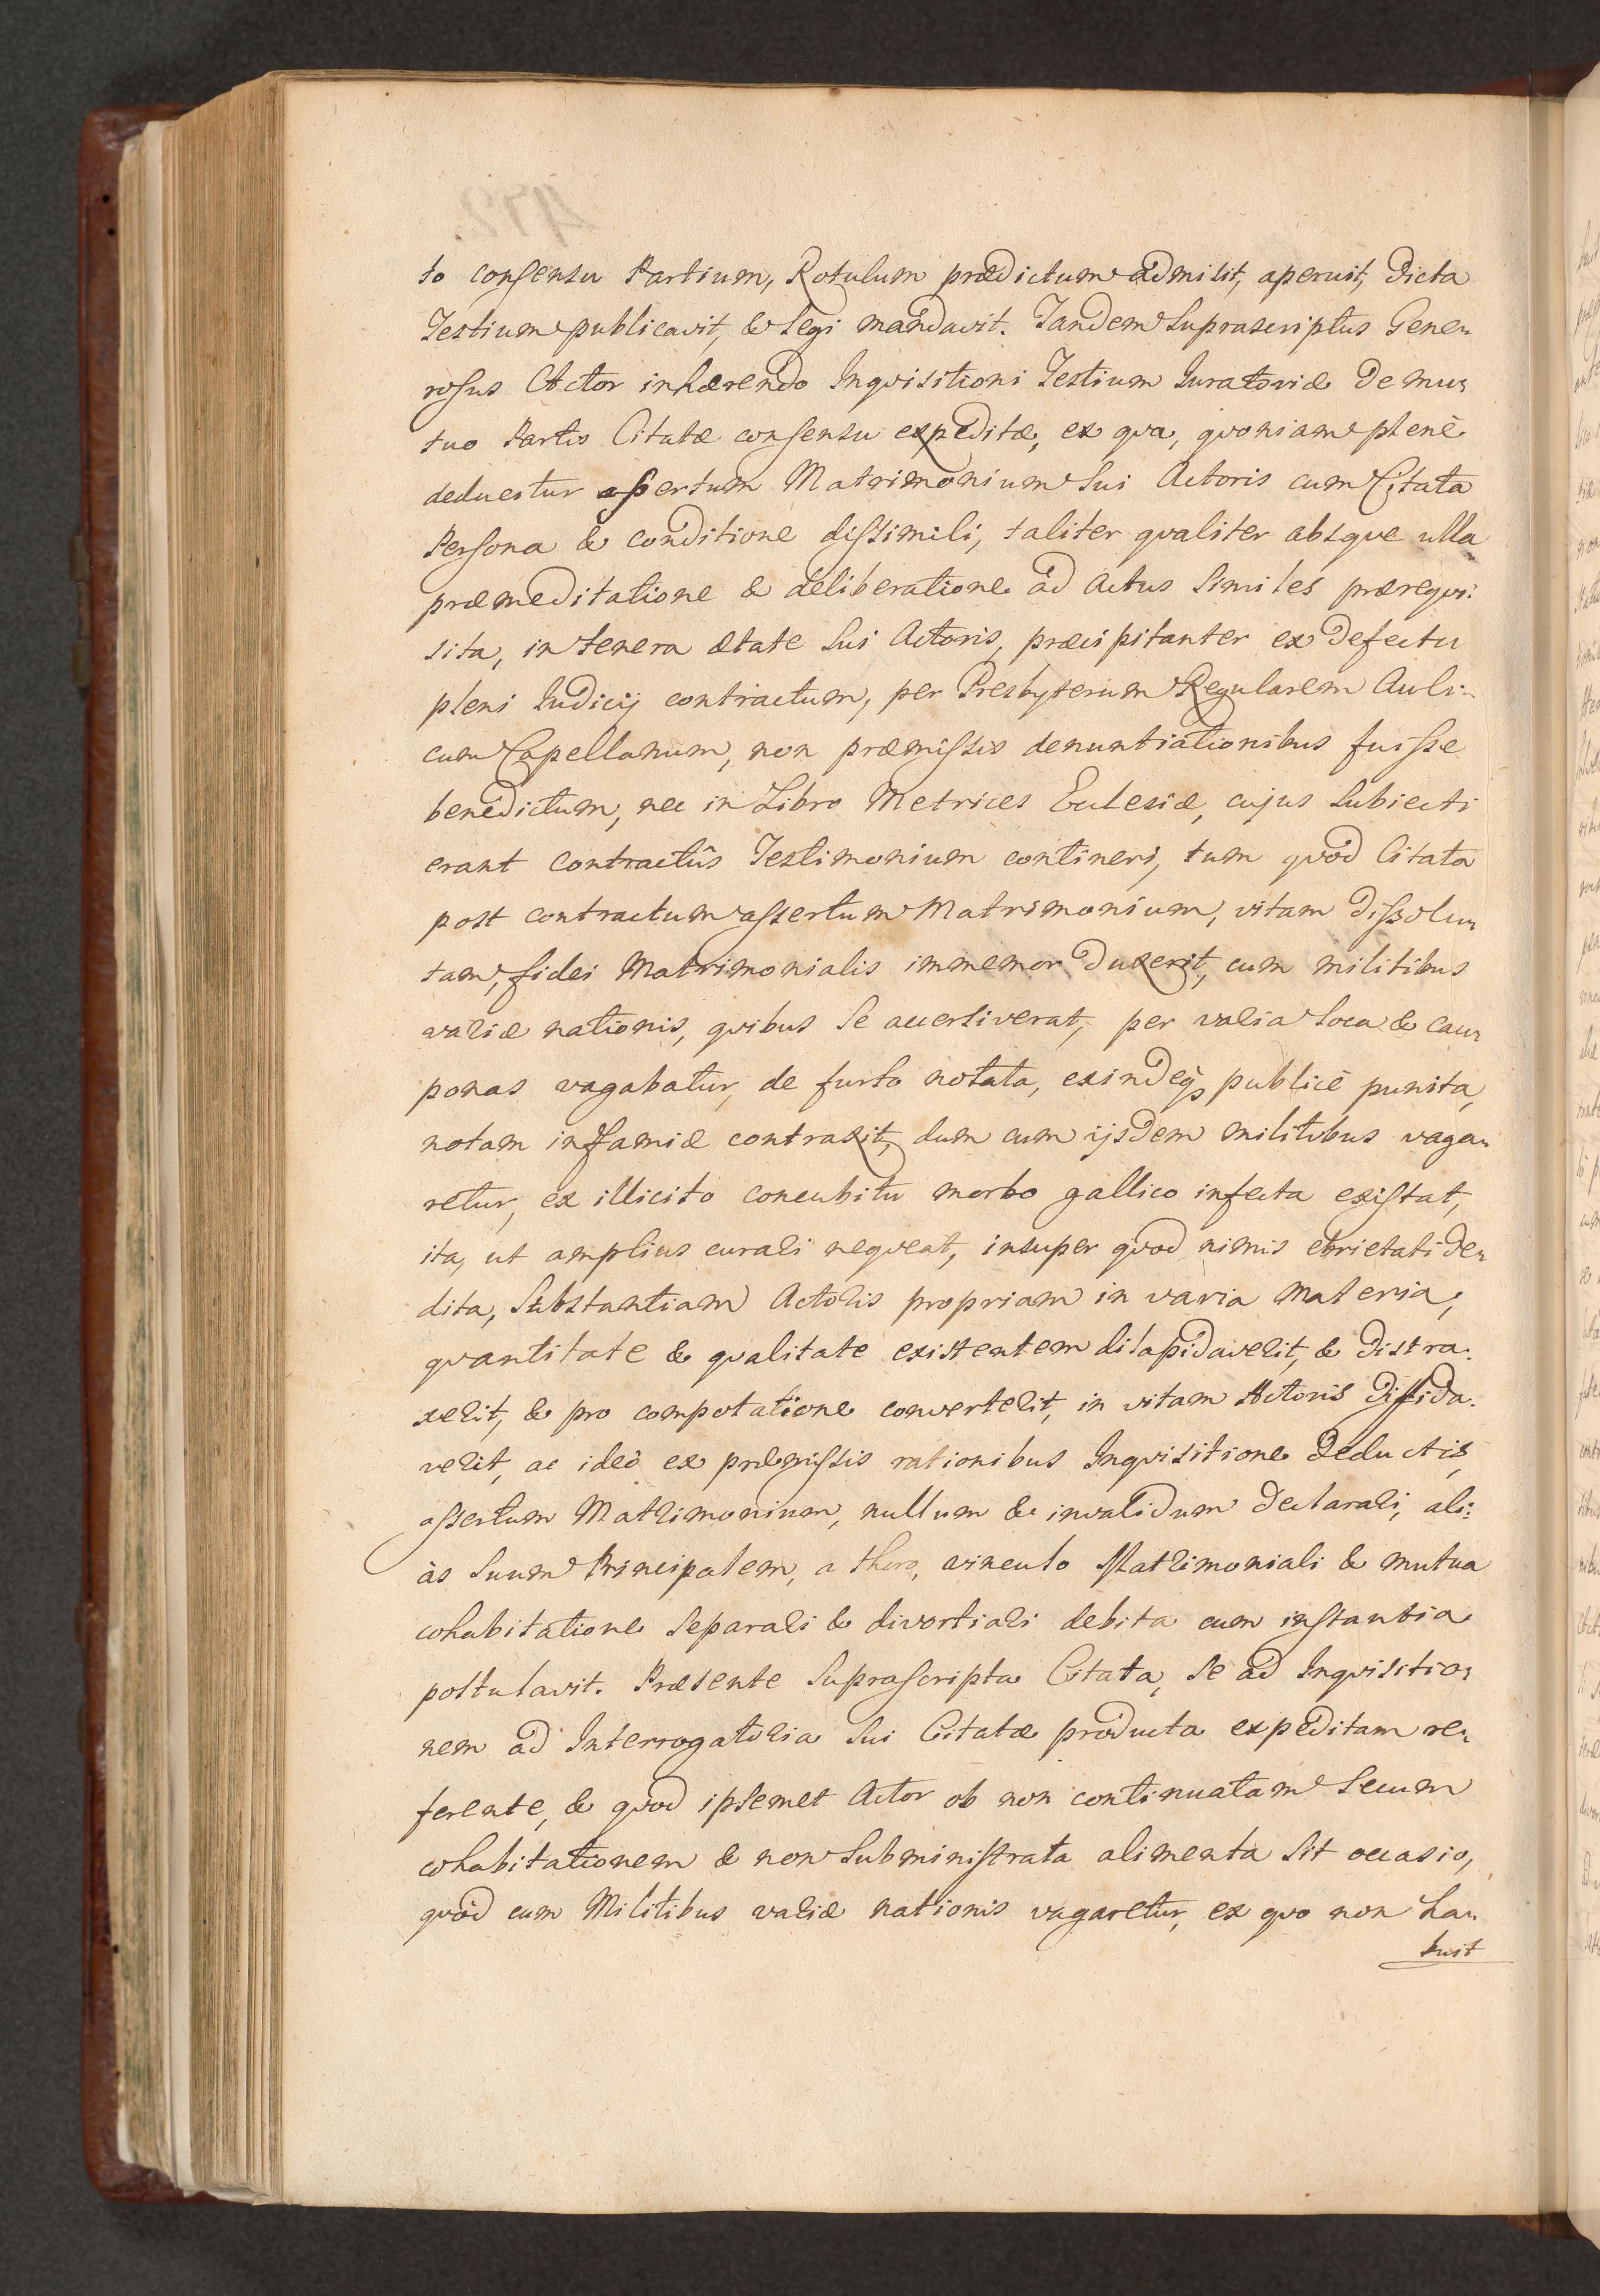 to consensu Partium, Rotulum prædictum admisit, aperuit, dicta
Testium publicavit, & legi mandavit. Tandem Suprascriptus Gene-
rosus Actor inhærendo Inqvisitioni Testium Iuratoriæ de mu-
tuo Partis Citatæ consensu expeditæ, ex qva, qvoniam plenè
deducitur assertum Matrimonium Sui Actoris cum Citata
Persona & conditione dissimili, taliter qvaliter absqve ulla
præmeditatione & deliberatione ad Actus Similes præreqvi-
sita, in tenera ætate Sui Actoris, præcipitanter ex defectu
pleni Iudicij contractum, per Presbyterum Regularem Auli-
cum Capellanum, non præmissis denuntiationibus fuisse
benedictum, nec in Libro Metrices Ecclesiæ, cujus Subiecti
erant Contractûs Testimonium contineri, tum qvod Citata
post contractum assertum Matrimonium, vitam dissolu-
tam, fidei Matrimonialis immemor duxerit, cum militibus
variæ nationis, qvibus Se accersiverat, per varia Loca & cau-
ponas vagabatur, de furto notata, exindeq3 publicè punita,
notam infamiæ contraxit, dum cum ijsdem militibus vaga-
retur, ex illicito concubitu morbo gallico infecta existat,
ita, ut amplius curari neqveat, insuper qvod nimis ebrietati de-
dita, Substantiam Actoris propriam in varia Materia,
qvantitate & qvalitate existentem dilapidaverit, & distra-
xerit, & pro compotatione converterit, in vitam Actoris diffida-
verit, ac ideò ex præmissis rationibus Inqvisitione deductis,
assertum Matrimonium, nullum & invalidum declarari, ali-
às Suum Principalem, a thoro, vinculo Matrimoniali & mutua
cohabitatione Separari & divortiari debita cum instantia
postulavit. Præsente Suprascripta Citata, Se ad Inqvisitio-
nem ad Interrogatoria Sui Citatæ producta expeditam re-
ferente, & qvod ipsemet Actor ob non continuatam Secum
cohabitationem & non Subministrata alimenta Sit occasio,
qvòd cum Militibus variæ nationis vagaretur, ex qvo non ha-
buit